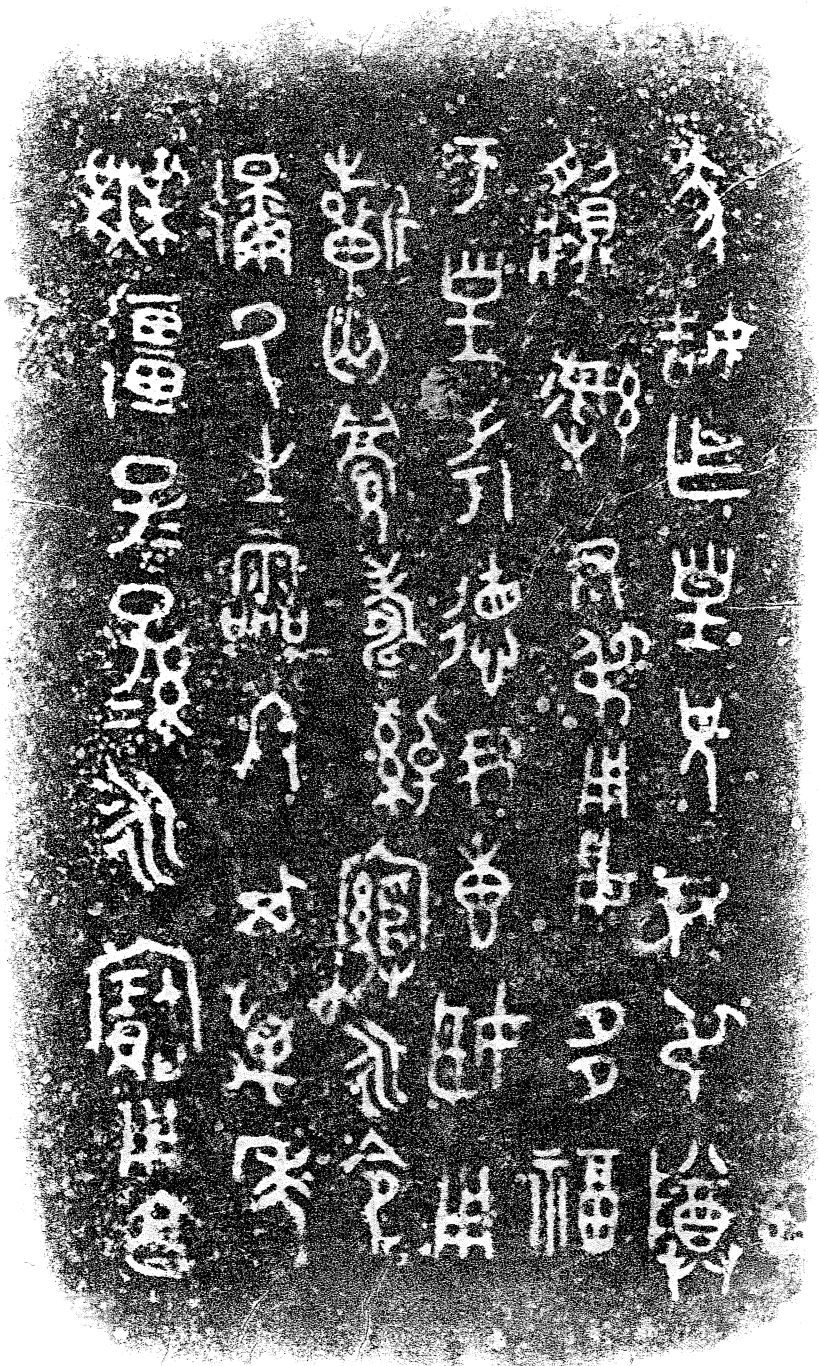 蔡姞乍皇兄尹弔尊
𩰬彝尹弔用妥多福
于皇考德尹叀姬用
旂匄眉壽綽綰永令
彌厥生霝冬其萬年
無疆子子孫孫永寶用亯